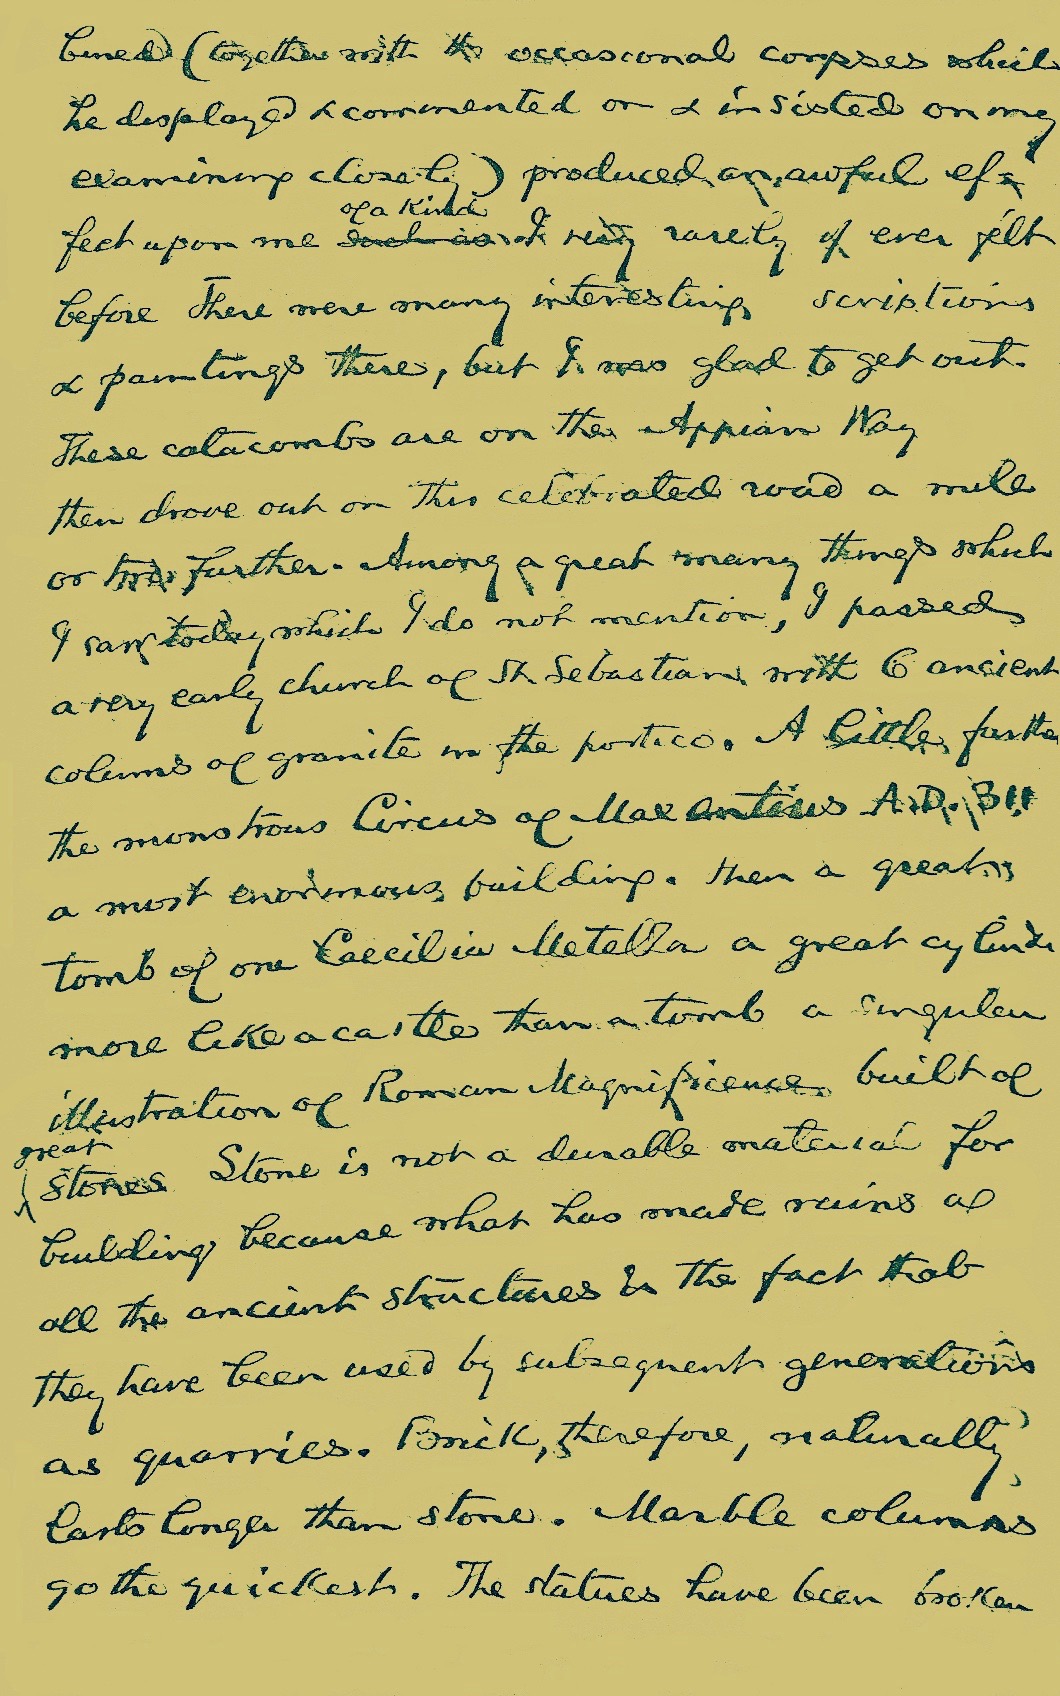 bined (together with the occasional corpses which
he displayed & commented on & insisted on my
examining closely) produced an awful ef-
of a kind
fect upon me such as I very rarely if ever felt
before There were many interesting scriptions
& paintings there, but I was glad to get out.
These catacombs are on the Appian Way
then drove out on this celebrated road a mile
or two further. Among a great many things which
I saw today which I do not mention, I passed
a very early church of St. Sebastian with 6 ancient
colums of granite in the portico. A little farther
the monstrous Circus of Maxantius A.D. 311
a most enormous building. then a great
tomb of one Caecilia Metella a great cylinder
more like a castle than a tomb a singular
illustration of Roman Magnificence built of
great
stones Stone is not a durable material for
building because what has made ruins of
all the ancient structures is the fact that
they have been used by subsequent generations
as quarries. Brick, therefore, naturally
lasts longer than stone. Marble columns
go the quickest. The statues have been broken